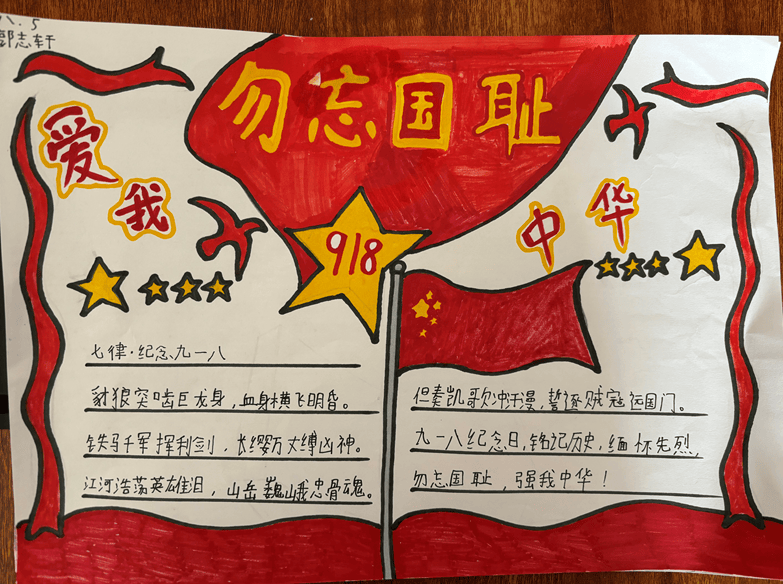 八.5
郭志轩
勿忘国耻
爱我
中华
918
七律·纪念九一八
豺狼突啮巨龙身，血身横飞明昏。
铁马千军挥利剑，长缨万丈缚凶神。
江河浩荡英雄泪，山岳巍峨忠骨魂。
但奏凯歌冲汗漫，誓逐贼寇运国门。
九一八纪念日，铭记历史，缅怀先烈，
勿忘国耻，强我中华！